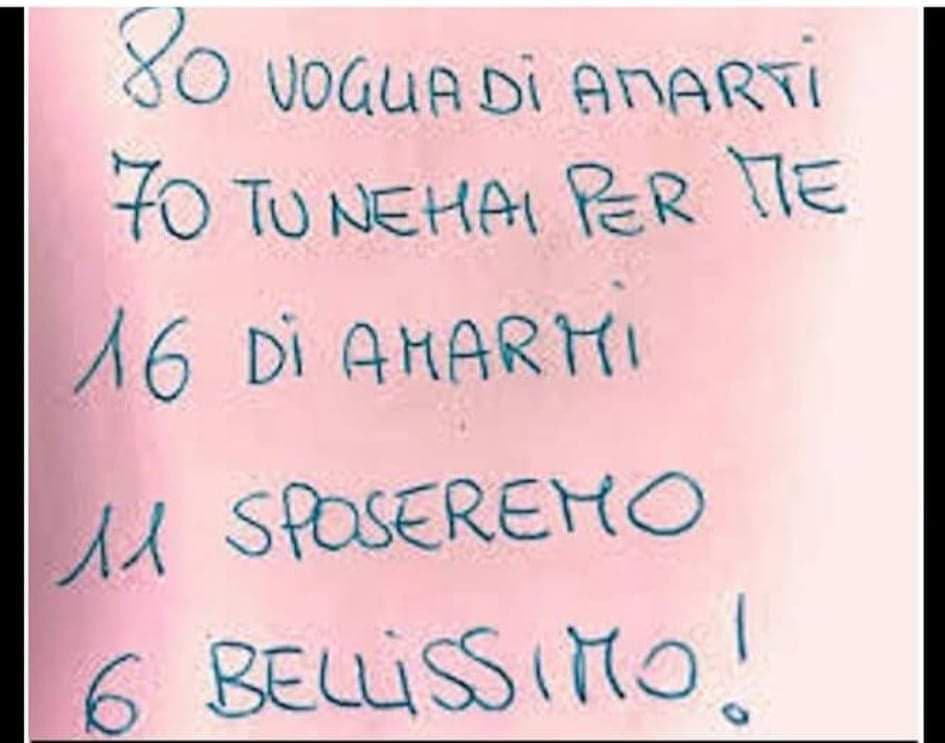 80 VOGLIA DI AMARTI
70 TU NE HAI PER ME
16 DI AMARMI
11 SPOSEREMO
6 BELLISSIMO!